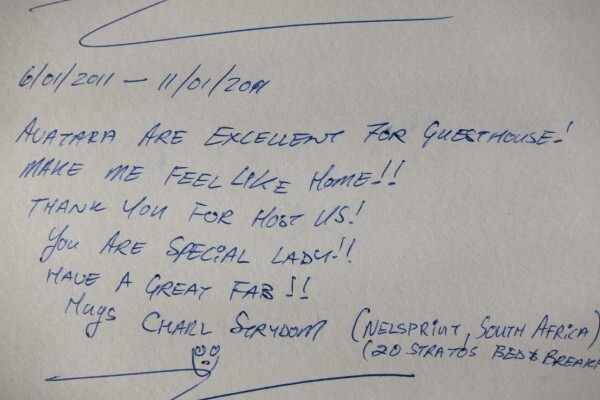 6/01/2011 — 11/01/2011
AVATARA ARE EXCELLENT FOR GUESTHOUSE!
MAKE ME FEEL LIKE HOME!!!
THANK YOU FOR HOST US!
YOU ARE SPECIAL LADY!!!
HAVE A GREAT FAB!!!
Hugs CHARL STRYDOM (NELSPRINT, SOUTH AFRICA)
(20 STRATOS BED & BREAKF